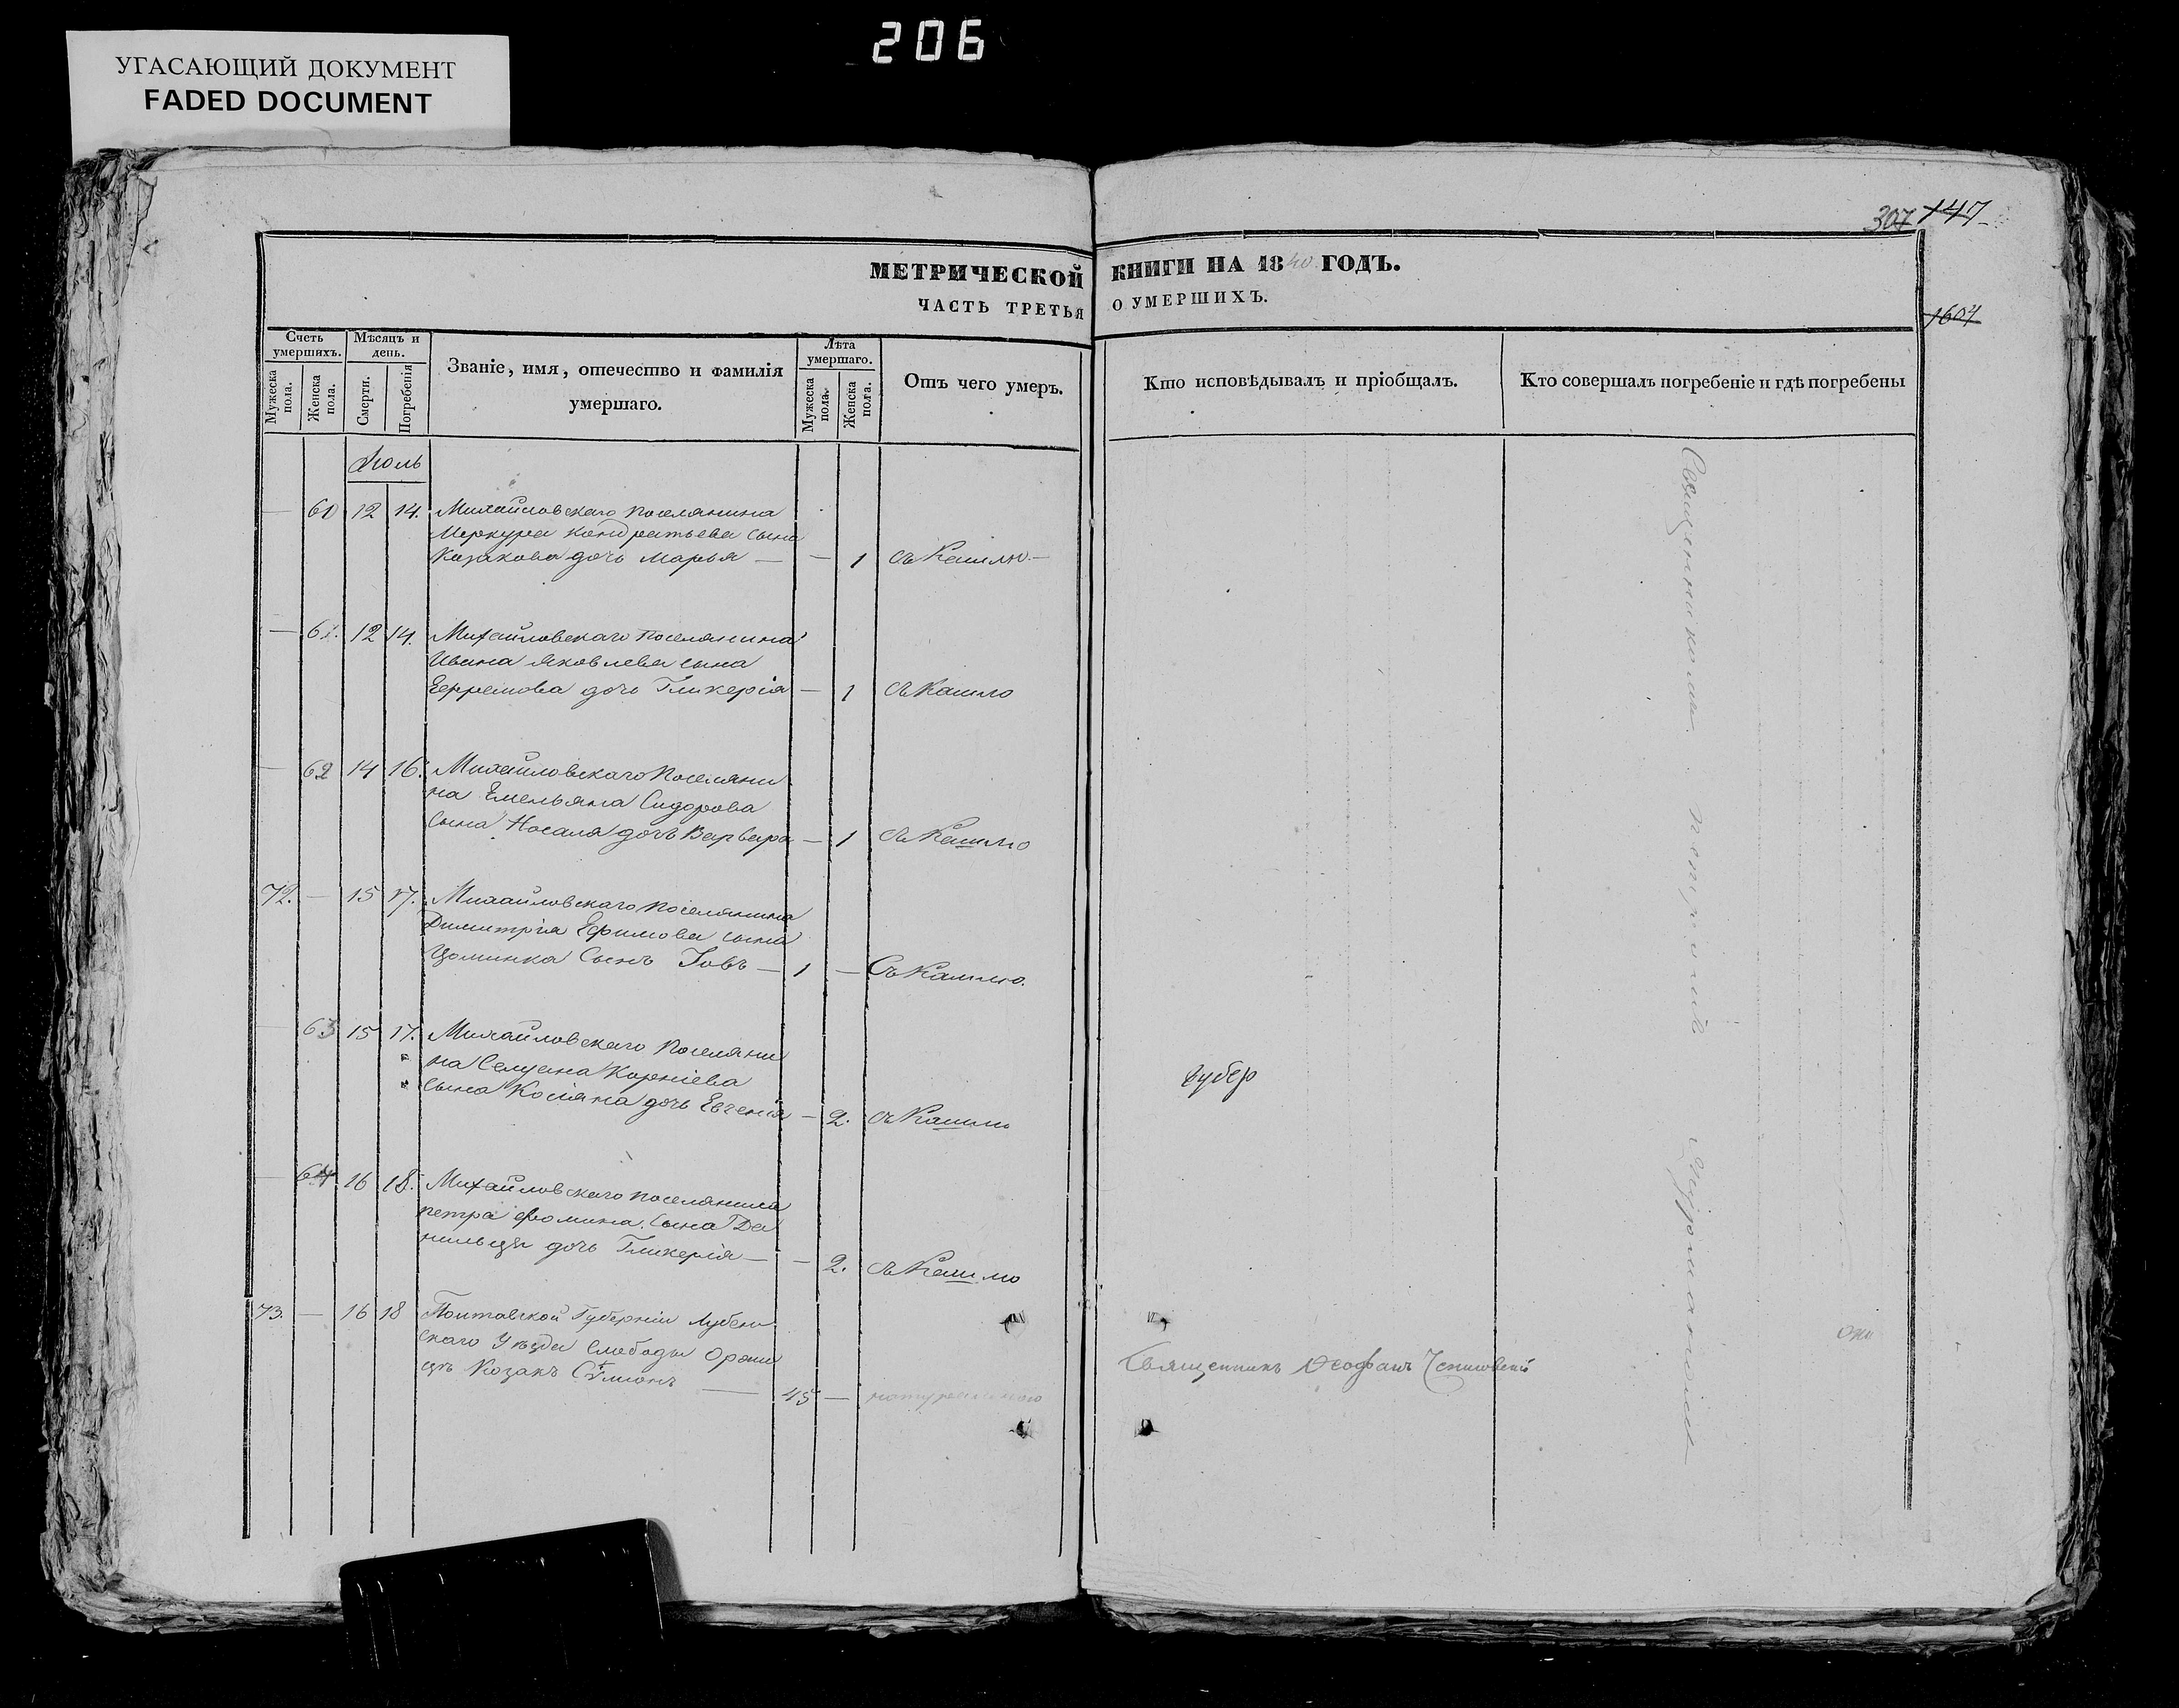 206
УГАСАЮЩИЙ ДОКУМЕНТ
FADED DOCUMENT
307 147
1604
МЕТРИЧЕСКОЙ КНИГИ НА 1840 ГОДЪ.
ЧАСТЬ ТРЕТЬЯ О УМЕРШИХЪ.
Счетъ умершихъ.
Мужеска пола.
Женска пола.
Мѣсяцъ и день.
Смерти.
Погребенія
Званіе, имя, отечество и фамилія
умершаго.
Лѣта умершаго.
Мужеска пола.
Женска пола.
Отъ чего умеръ.
Кто исповѣдывалъ и пріобщалъ.
Кто совершалъ погребеніе и гдѣ погребены
Июль
— 60 12 14. Михайловскаго поселянина
Меркура Кондратьева сына
Казакова дочь Марья — — 1 съ Кашлю —
— 61. 12 14. Михайловскаго поселянина
Ивана Яковлева сына
Ефремова дочь Гликерія — 1 съ Кашлю
— 62 14 16. Михайловскаго Поселяни
на Емельяна Сидорова
сына Носаля дочь Варвара — 1 съ Кашлю
72. — 15 17. Михайловскаго поселянина
Димитрія Ефимова сына
Сынъ Іовъ — 1 — Съ Кашлю.
— 63 15 17. Михайловскаго Поселяни
на Корніева
сына дочь Евгенія — 2. съ Кашлю
— 64 16 18. Михайловскаго поселянина
Петра Фомина сына Да
нильца дочь Гликерія — — 2. съ Кашлю
73. — 16 18 Полтавской Губерніи Лубен
скаго Уѣзда Слободы Оржи
цъ Козакъ — 45 — натуральною
Священникъ Ѳеофанъ
Священникомъ Петромъ